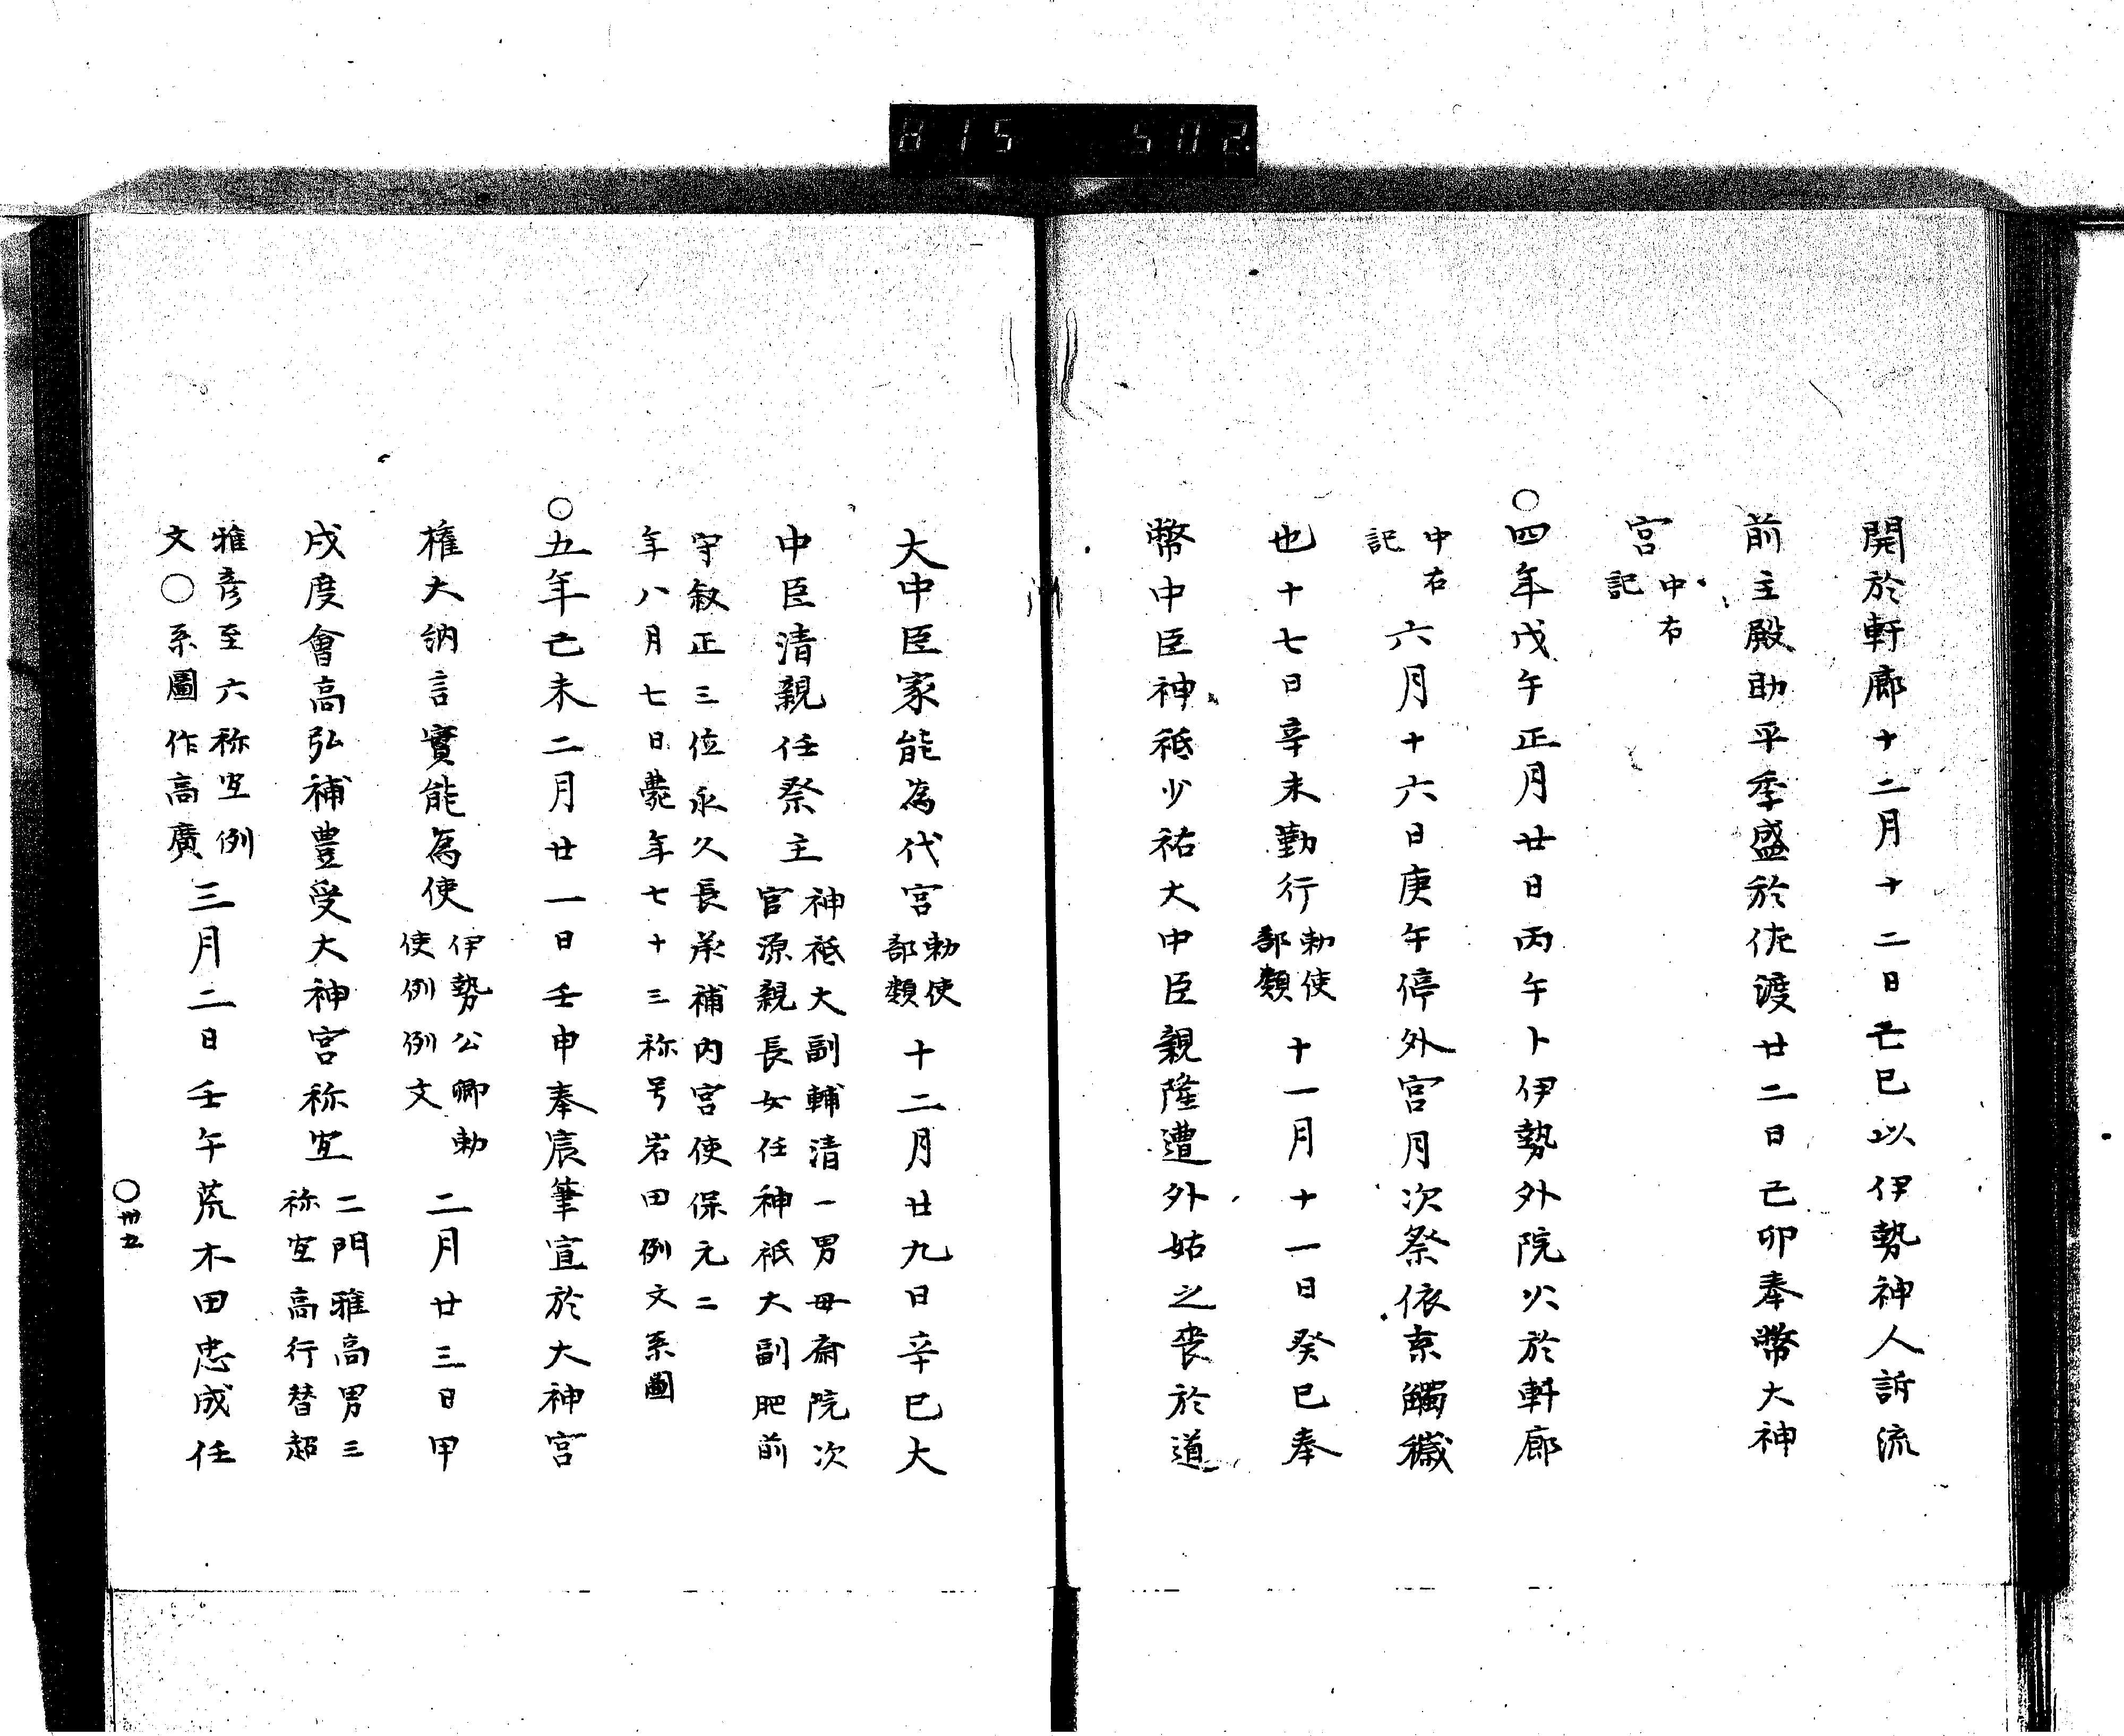 815 502
開於軒廊十二月十二日己巳以伊勢神人訴流
前主殿助平季盛於佐渡廿二日己卯奉幣大神
宮中右記
○四年戊午正月廿日丙午卜伊勢外院火於軒廊
中右記六月十六日庚午停外宮月次祭依東觸穢
也十七日辛未勤行勅使部類十一月十一日癸巳奉
幣中臣神祇少祐大中臣親隆遭外姑之喪於道
大中臣家能為代宮勅使部類十二月廿九日辛巳大
中臣清親任祭主神祇大副輔清一男母斎院次
官源親長女任神祇大副肥前
守叙正三位永久長承補内宮使保元二
年八月七日薨年七十三称号岩田例文系圖
○五年己未二月廿一日壬申奉宸筆宣於大神宮
權大納言實能為使伊勢公卿勅
使例例文二月廿三日甲
戌度會高弘補豊受大神宮祢宜二門雅高男三
祢宜高行替超
雅彦至六祢宜例
文○系圖作高廣三月二日壬午荒木田忠成任
○卅五